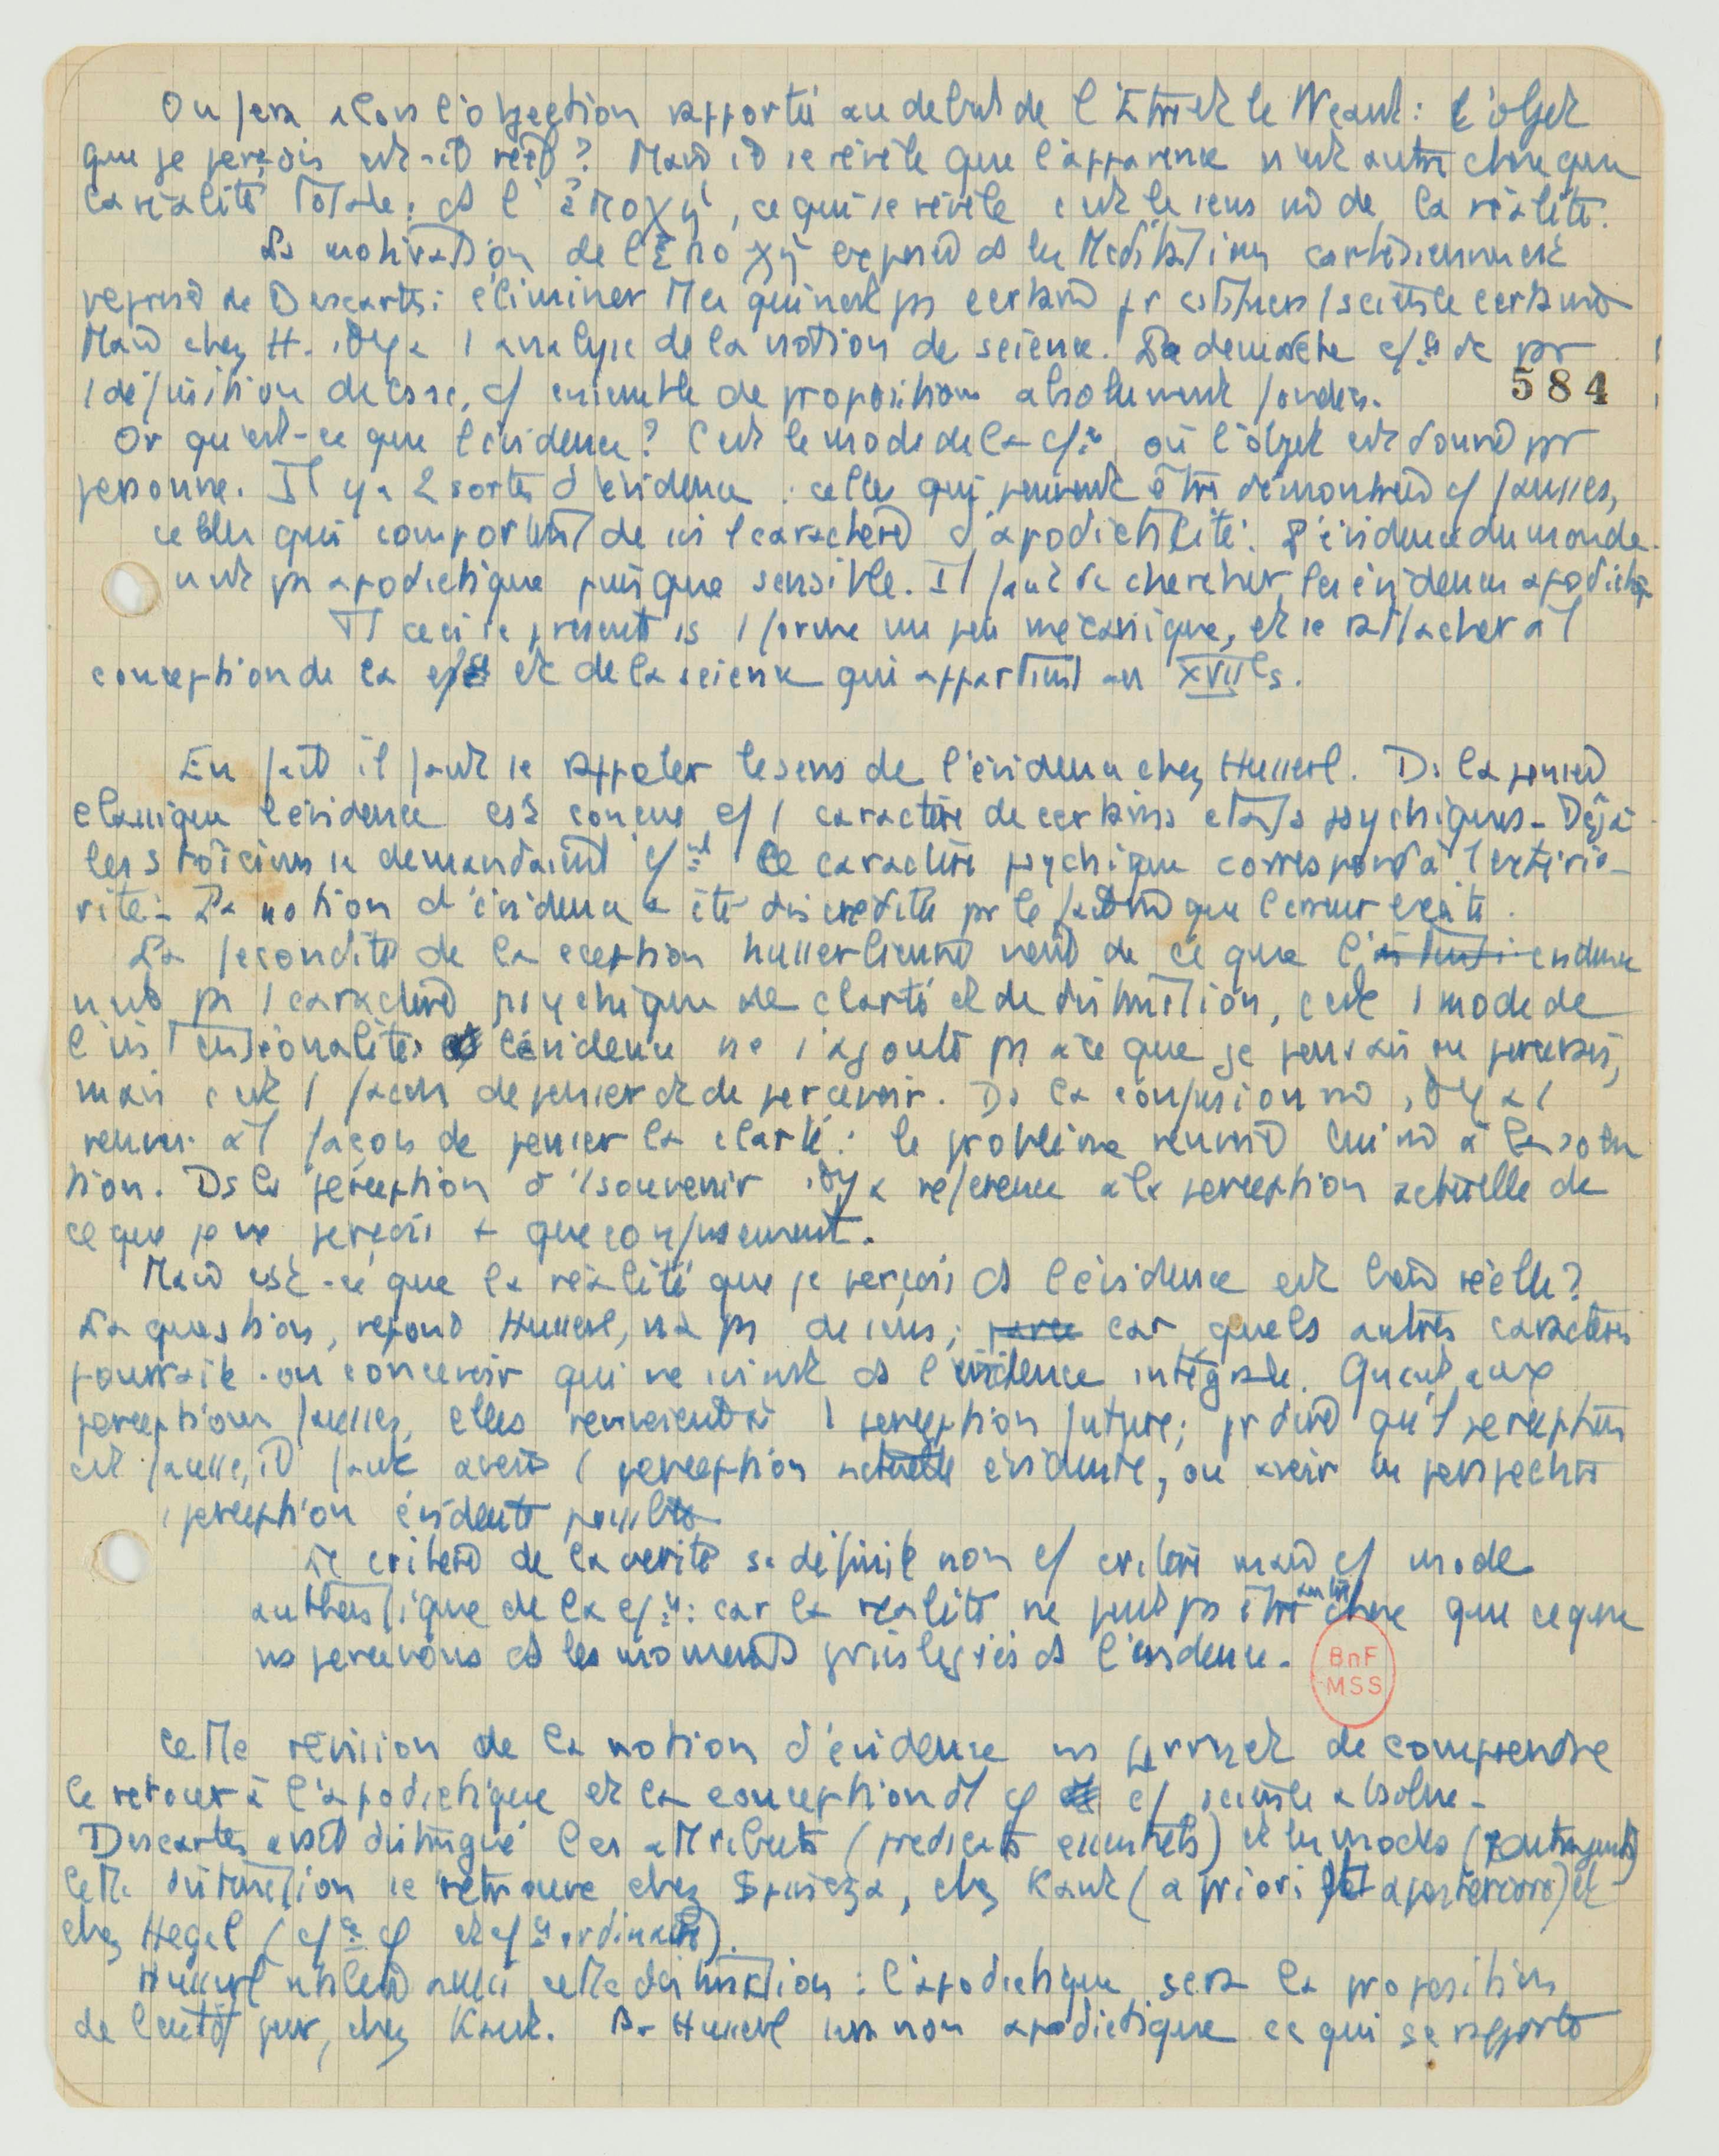 On fera alors l'objection rapportée au debut de l'Etre et le Neant : l'objet
que je perçois est-il réel ? Mais il se révèle que l'apparence n'est autre chose que
la réalité totale ; ds l'ἐποχή, ce qui se révèle c'est le sens m̂ de la réalité.
La motivation de l'ἐποχή exposée ds les Meditations cartésiennes est
reprise de Descartes : éliminer tt ce qui n'est pas certain pr constituer 1 science certaine
Mais chez H. il y a 1 analyse de la notion de science. La démarche c/ce dc par
584
1 définition de la sc. c/ ensemble de propositions absolument fondées.
Or qu'est-ce que l'évidence ? C'est le mode de la c/ce où l'objet est donné en
personne. Il y a 2 sortes d'évidence : celles qui peuvent être démontrées c/ fausses,
celles qui comportent de soi 1 caractère d'apodictilité. L'évidence du monde
n'est pas apodictique puisque sensible. Il faut dc chercher les évidences apodictiq
Tt ceci se présente ss 1 forme un peu mécanique, et se rattacher à 1
conception de la et de la science qui appartient au XVIIe s.
En fait il faut se rappeler le sens de l'évidence chez Husserl. Ds la pensée
classique l'évidence est conçue c/ 1 caractère de certains états psychiques - Déjà
les stoïciens se demandaient c/nt ce caractère psychique correspond à l'extério-
rité - La notion d'évidence a été discréditée pr le fait m̂ que l'erreur existe.
La fécondité de la ception husserlienne vient de ce que l'évidence
n'est pas 1 caractère psychique de clarté et de distinction, c'est 1 mode de
l'intentionalité : l'évidence ne s'ajoute pas à ce que je pensais ou percevais,
mais c'est 1 façon de penser et de percevoir. Ds la confusion m̂, il y a 1
renvoi à 1 façon de penser la clarté : le problème renvoie lui m̂ à la solu
tion. Ds la perception d'1 souvenir il y a référence à la perception actuelle de
ce que je ne perçois + que confusément.
Mais est-ce que la réalité que je perçois ds l'évidence est bien réelle ?
La question, répond Husserl, n'a pas de sens ; parce car quels autres caractères
pourrait-on concevoir qui ne soient ds l'évidence intégrale. Quant aux
perceptions fausses, elles renvoient à 1 perception future ; pr dire qu'1 perception
est fausse, il faut avoir 1 perception actuelle évidente, ou avoir en perspective
1 perception évidente possible
Le critère de la vérité se définit non c/ critère mais c/ mode
authentique de la c/ce : car la réalité ne peut pas être autre chose que ce que
ns percevons ds les moments privilégiés ds l'évidence.
BnF
MSS
Cette révision de la notion d'évidence ns permet de comprendre
le retour à l'apodictique et la conception d'1 c/ science absolue -
Descartes avait distingué les attributs (prédicats essentiels) et les modes (contingents)
Cette distinction se retrouve chez Spinoza, chez Kant (a priori et a posteriori) et
chez Hegel (c/ce φ et c/ce ordinaire).
Husserl aussi cette distinction : l'apodictique sera la proposition
de l'entdt pur, chez Kant. Pr Husserl sera non apodictique ce qui se rapporte